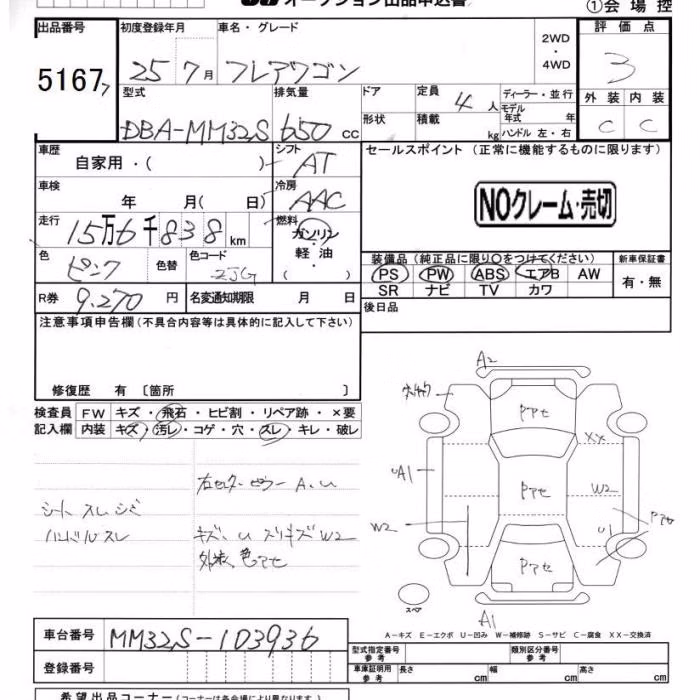 オークション出品申込書
①会場控
出品番号 初度登録年月 車名・グレード 2WD・4WD 評価点
5167 25 7月 フレアワゴン 3
型式 排気量 ドア 定員 4人 ディーラー・並行 外装 内装
DBA-MM32S 650cc 形状 積載 kg モデル年式 年 C C
ハンドル 左・右
車歴 自家用・( ) シフト AT セールスポイント (正常に機能するものに限ります)
車検 年 月( 日) 冷房 AAC NOクレーム・売切
走行 15万6千838km 燃料 ガソリン・軽油・( )
色 ピンク 色替 色コード ZJG 装備品(純正品に限り○をつけてください) 新車保証書
PS PW ABS エアB AW 有・無
SR ナビ TV カワ
R券 9.270円 名変通知期限 月 日 後日品
注意事項申告欄(不具合内容等は具体的に記入して下さい)
修復歴 有 〔箇所 〕
検査員 FW キズ・飛石・ヒビ割・リペア跡・×要
記入欄 内装 キズ・汚レ・コゲ・穴・スレ・キレ・破レ
右センターピラー A、U
シート スレ シミ
ハンドル スレ
キズ、U スリキズ W2
外装、色アセ
A2
Pアせ
XX
UA1
Pアせ
W2
Pアせ
W2
U1
Pアせ
A1
スペア
A-キズ E-エクボ U-凹み W-補修跡 S-サビ C-腐食 XX-交換済
車台番号 MM32S-103936
型式指定番号 参考 類別区分番号 参考
登録番号 車庫証明用 参考 長さ cm 幅 cm 高さ cm
希望出品コーナー(コーナーは会場により異なります)